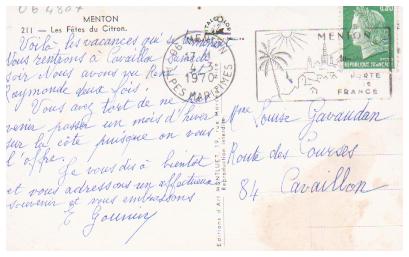 MENTON
211 - Les Fêtes du Citron.
Voilà, les vacances qui se
Nous rentrons à Cavaillon Samedi
soir Nous avons vu
Raymonde deux fois!
Vous avez tort de ne pas
venir passer un mois d'hiver
sur la côte puisque on vous
l'offre.
Je vous dis à bientôt
et vous adressons un affectueux
souvenir et vous embrassons
MENTON
17
1970
ALPES MARITIMES
MENTON
PORTE
DE
FRANCE
0.30
REPUBLIQUE FRANCAISE
Editions d'Art MONTLUET
Mme Louise Gavaudan
Route des Courses
84 Cavaillon